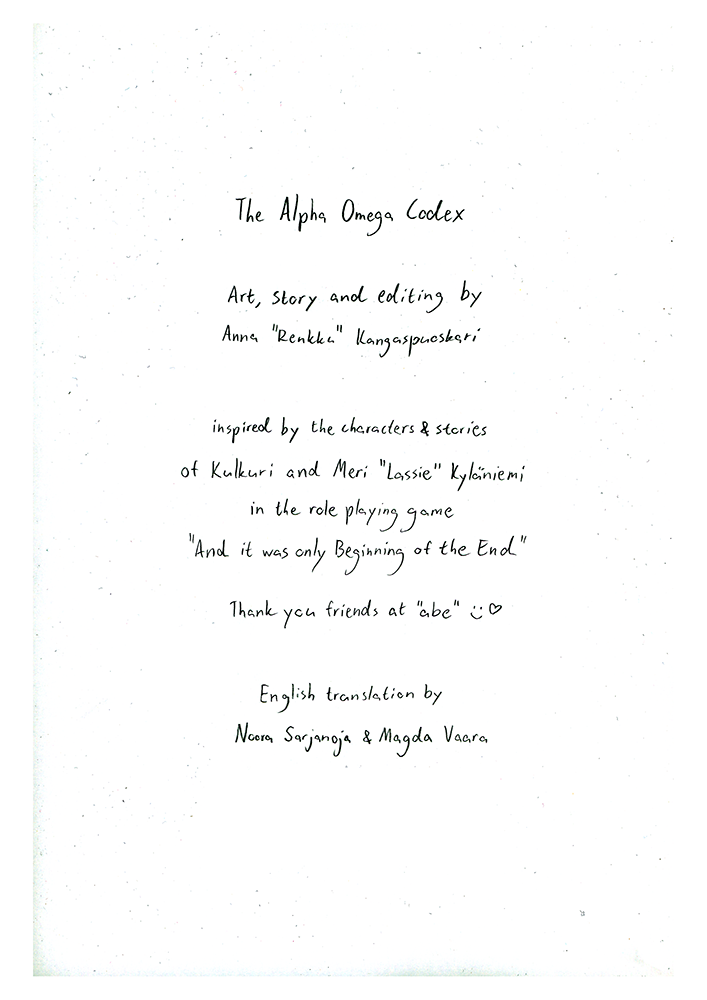 The Alpha Omega Codex
Art, story and editing by
Anna "Renkku" Kangaspuoskari
inspired by the characters & stories
of Kulkuri and Meri "Lassie" Kyläniemi
in the role playing game
"And it was only Beginning of the End"
Thank you friends at "abe" :) ♡
English translation by
Noora Sarjanoja & Magda Vaara